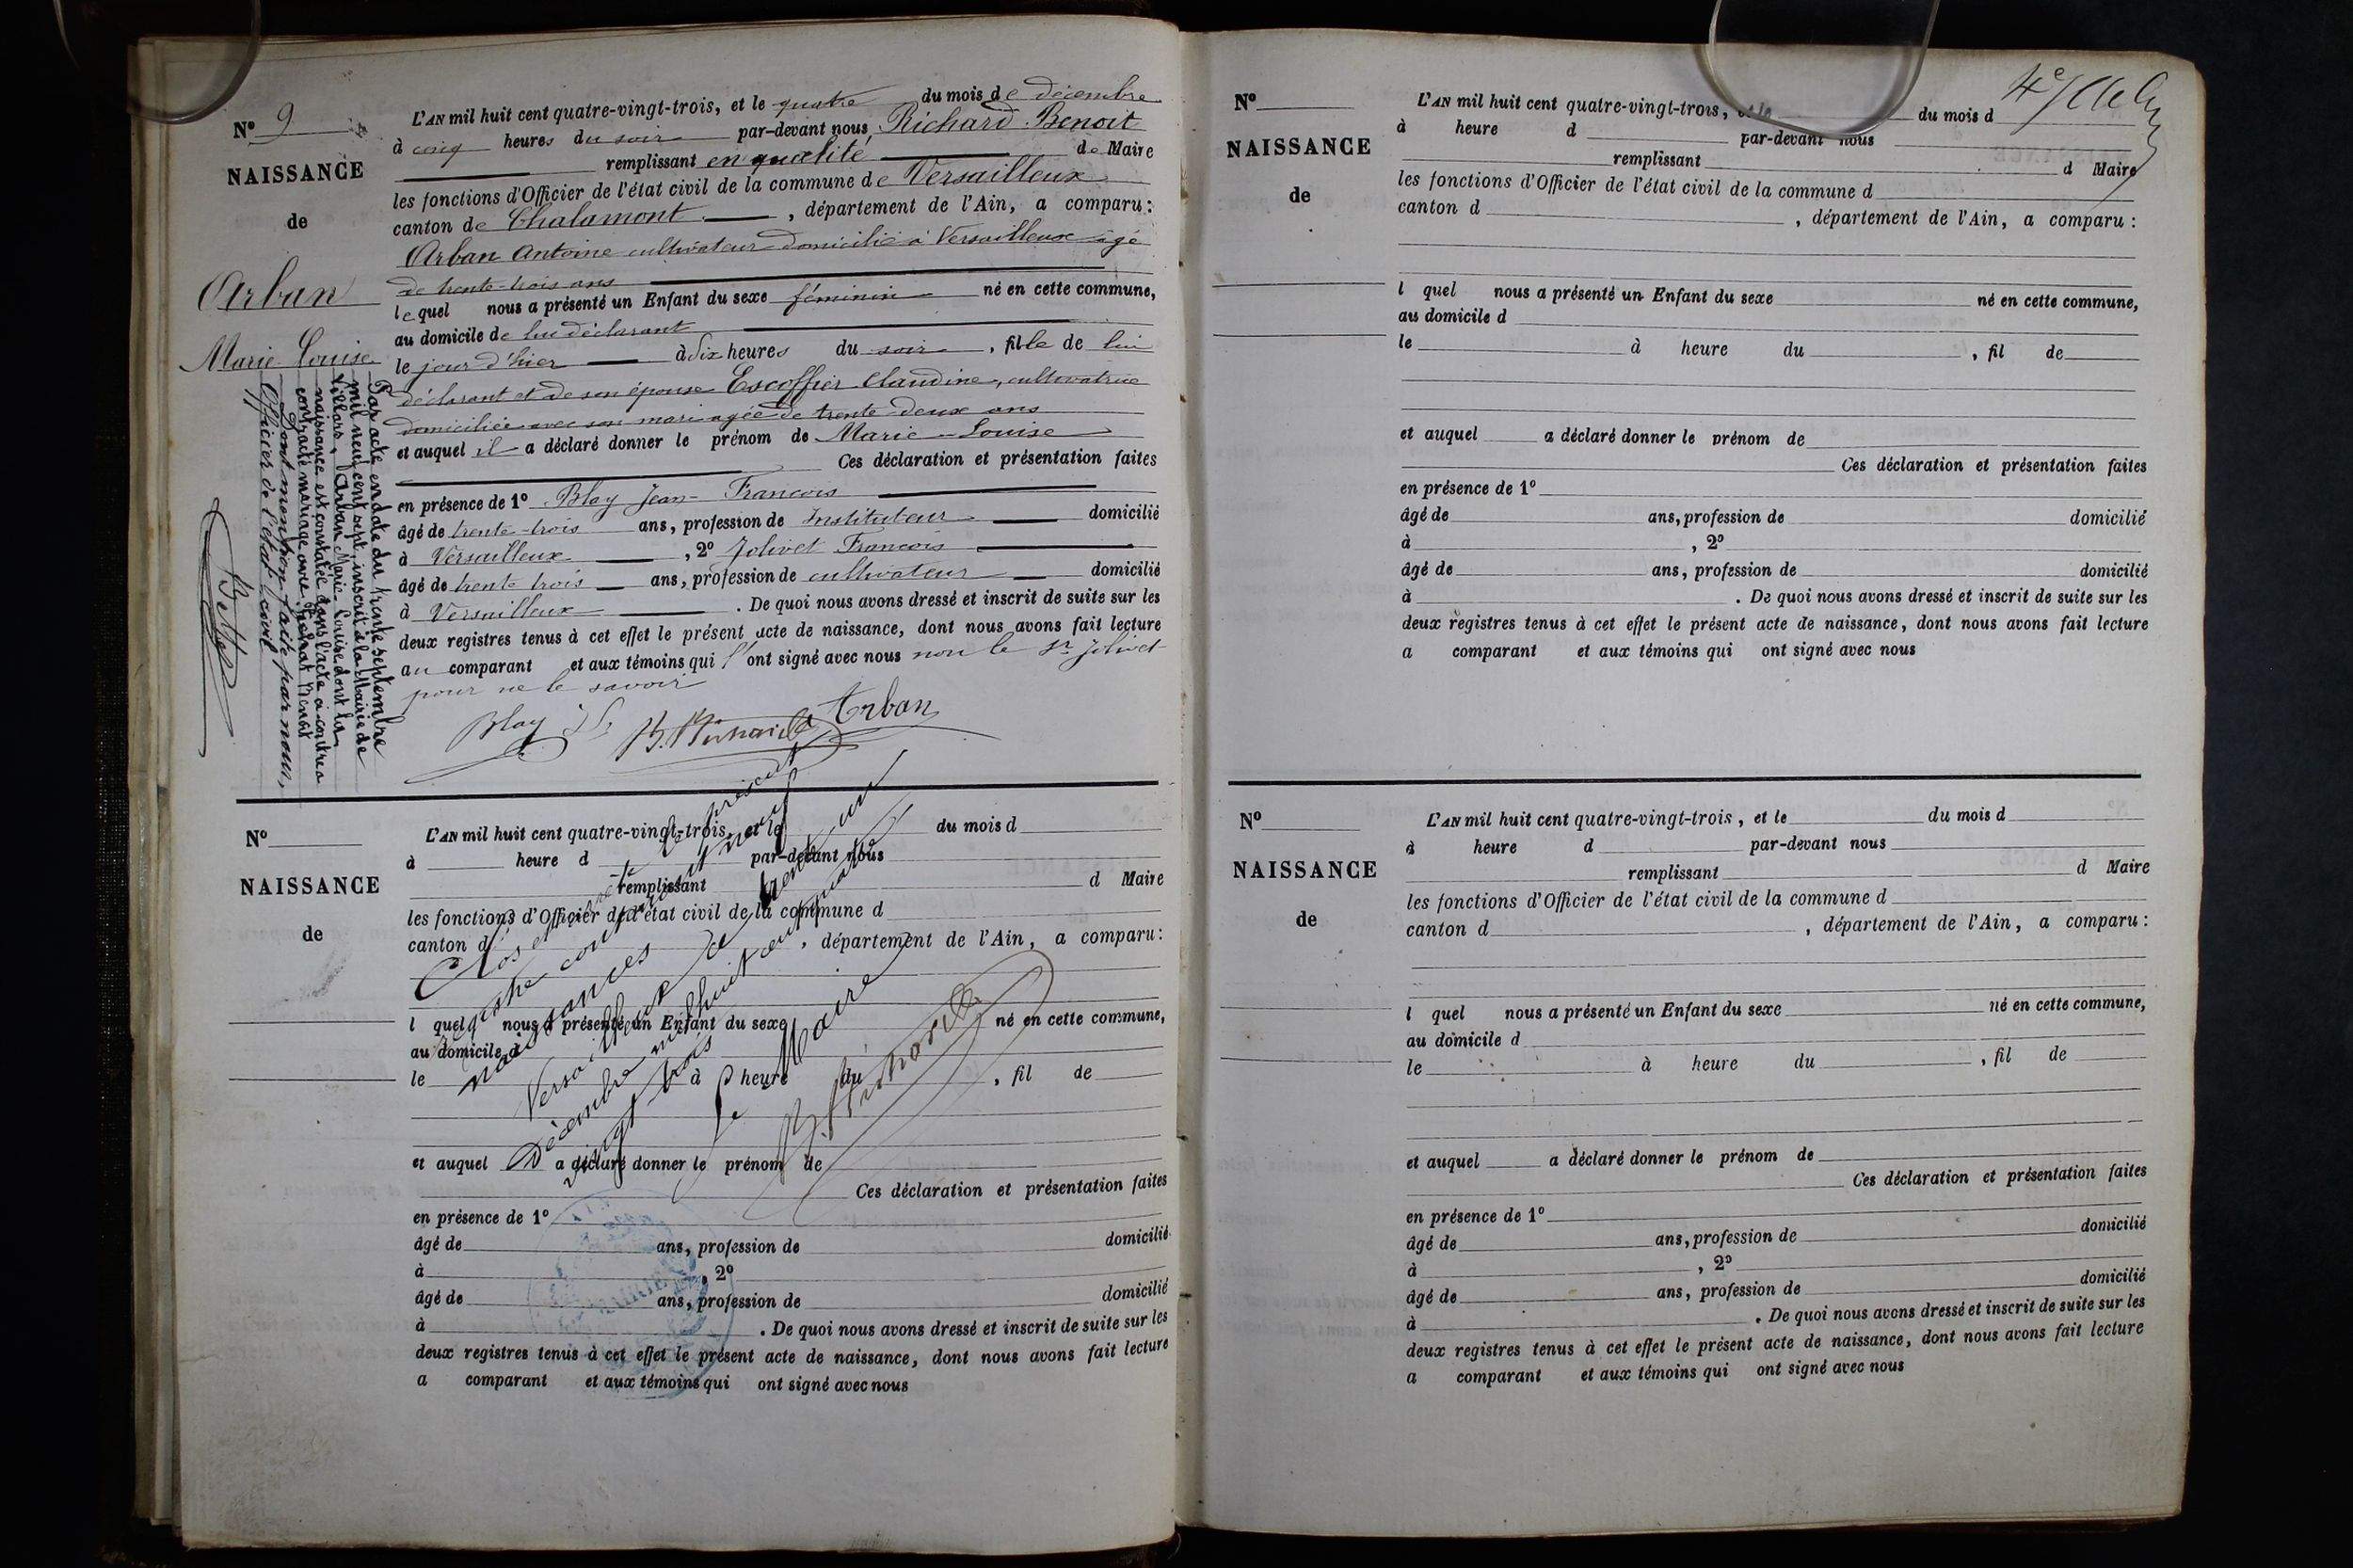 Nº 9
NAISSANCE
de
Arban
Marie Louise
Par acte en date du trente septembre
mil neuf cent sept, inscrit à la Mairie de
Villars, Arban Marie-Louise dont la
naissance est constatée dans l'acte ci-contre a
contracté mariage avec Benoit
Dont mention faite par nous,
Officier de l'état civil
L'AN mil huit cent quatre-vingt-trois, et le quatre du mois de décembre
à cinq heures du soir par-devant nous Richard Benoit
remplissant en qualité de Maire
les fonctions d'Officier de l'état civil de la commune de Versailleux
canton de Chalamont, département de l'Ain, a comparu :
Arban Antoine cultivateur domicilié à Versailleux âgé
de trente-trois ans
lequel nous a présenté un Enfant du sexe féminin né en cette commune,
au domicile de lui déclarant
le jour d'hier à Six heures du soir, fille de lui
déclarant et de son épouse Escoffier Claudine, cultivatrice
domiciliée avec son mari agée de trente-deux ans
et auquel il a déclaré donner le prénom de Marie-Louise
Ces déclaration et présentation faites
en présence de 1º Blay Jean-Francois
âgé de trente-trois ans, profession de Instituteur domicilié
à Versailleux, 2º Jolivet Francois
âgé de trente trois ans, profession de cultivateur domicilié
à Versailleux. De quoi nous avons dressé et inscrit de suite sur les
deux registres tenus à cet effet le présent acte de naissance, dont nous avons fait lecture
au comparant et aux témoins qui l'ont signé avec nous non le Sr Jolivet
pour ne le savoir
Blay Arban
Nº
NAISSANCE
de
L'AN mil huit cent quatre-vingt-trois, et le du mois d
à heure d par-devant nous
remplissant d Maire
les fonctions d'Officier de l'état civil de la commune d
canton d, département de l'Ain, a comparu :
l quel nous a présenté un Enfant du sexe né en cette commune,
au domicile d
le à heure du, fil de
et auquel a déclaré donner le prénom de
Ces déclaration et présentation faites
en présence de 1º
âgé de ans, profession de domicilié
à, 2º
âgé de ans, profession de domicilié
à. De quoi nous avons dressé et inscrit de suite sur les
deux registres tenus à cet effet le présent acte de naissance, dont nous avons fait lecture
a comparant et aux témoins qui ont signé avec nous
Clos et le présent
registre contenant neuf
naissances le trente un
Versailleux
Décembre mil huit cent quatre
vingt trois
Le Maire
MAIRIE
4e
Nº
NAISSANCE
de
L'AN mil huit cent quatre-vingt-trois, et le du mois d
à heure d par-devant nous
remplissant d Maire
les fonctions d'Officier de l'état civil de la commune d
canton d, département de l'Ain, a comparu :
l quel nous a présenté un Enfant du sexe né en cette commune,
au domicile d
le à heure du, fil de
et auquel a déclaré donner le prénom de
Ces déclaration et présentation faites
en présence de 1º
âgé de ans, profession de domicilié
à, 2º
âgé de ans, profession de domicilié
à. De quoi nous avons dressé et inscrit de suite sur les
deux registres tenus à cet effet le présent acte de naissance, dont nous avons fait lecture
a comparant et aux témoins qui ont signé avec nous
Nº
NAISSANCE
de
L'AN mil huit cent quatre-vingt-trois, et le du mois d
à heure d par-devant nous
remplissant d Maire
les fonctions d'Officier de l'état civil de la commune d
canton d, département de l'Ain, a comparu :
l quel nous a présenté un Enfant du sexe né en cette commune,
au domicile d
le à heure du, fil de
et auquel a déclaré donner le prénom de
Ces déclaration et présentation faites
en présence de 1º
âgé de ans, profession de domicilié
à, 2º
âgé de ans, profession de domicilié
à. De quoi nous avons dressé et inscrit de suite sur les
deux registres tenus à cet effet le présent acte de naissance, dont nous avons fait lecture
a comparant et aux témoins qui ont signé avec nous